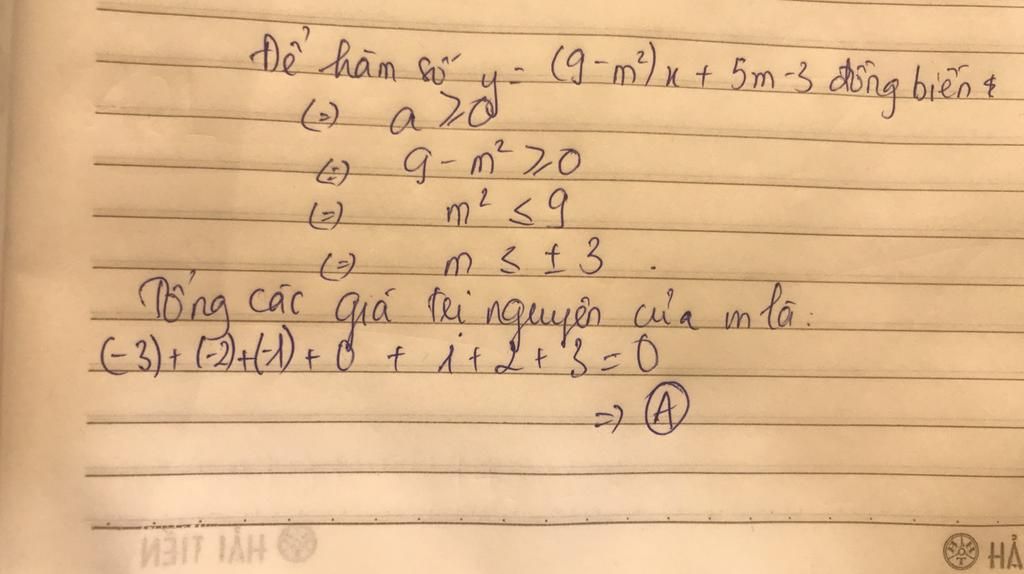 Để hàm số y = (9-m²)x + 5m-3 đồng biến
(=) a ≥ 0
(=) 9 - m² ≥ 0
(=) m² ≤ 9
(=) m ≤ ± 3 .
Tổng các giá trị nguyên của m là:
(-3)+(-2)+(-1)+ 0 + 1 + 2 + 3 = 0
=> A
HẢI TIẾN
HẢ